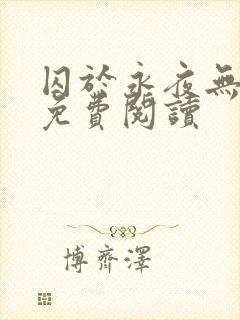 囚於永夜無
免費閱讀
博齊澤